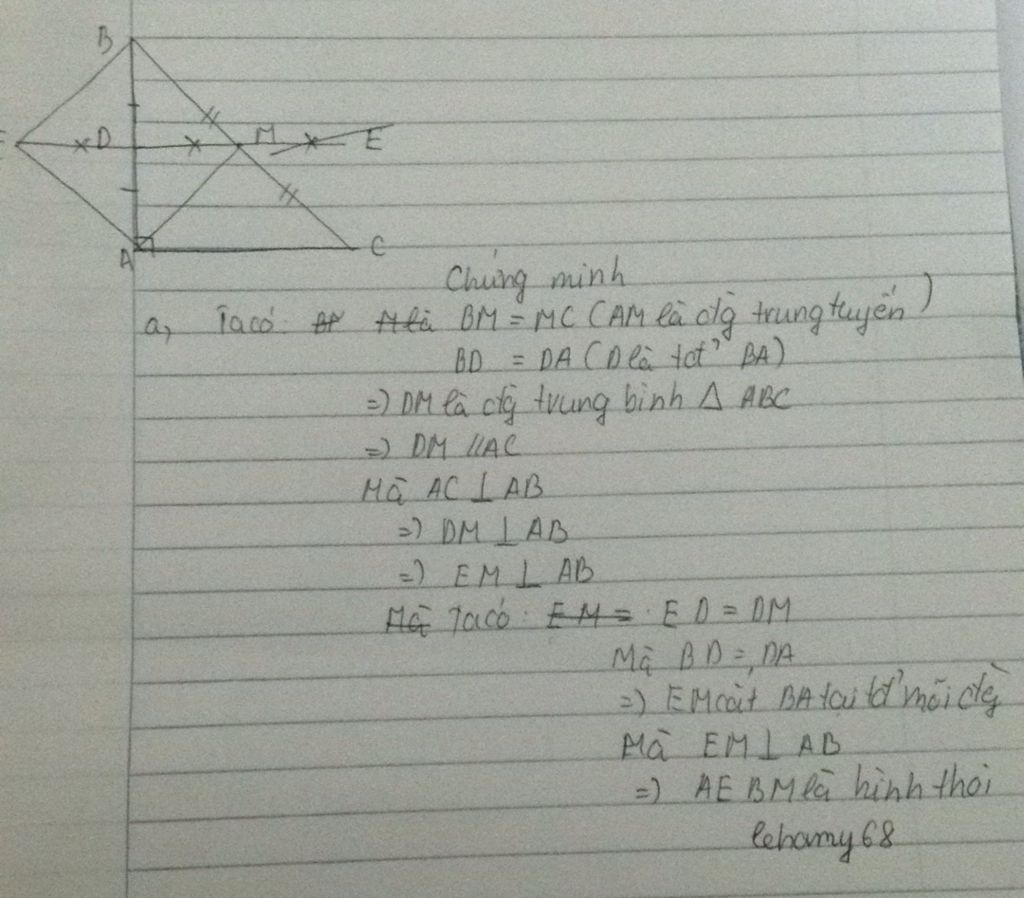 B
E D M E
A C
Chứng minh
a, Ta có: M là BM = MC (AM là đg trung tuyến)
BD = DA (D là tđ' BA)
=) DM là đg trung bình Δ ABC
=) DM // AC
Mà AC ⊥ AB
=) DM ⊥ AB
=) EM ⊥ AB
Mà Ta có: EM = ED = DM
Mà BD = DA
=) EM cắt BA tại tđ' mỗi đg
Mà EM ⊥ AB
=) AEBM là hình thoi
lehamy68